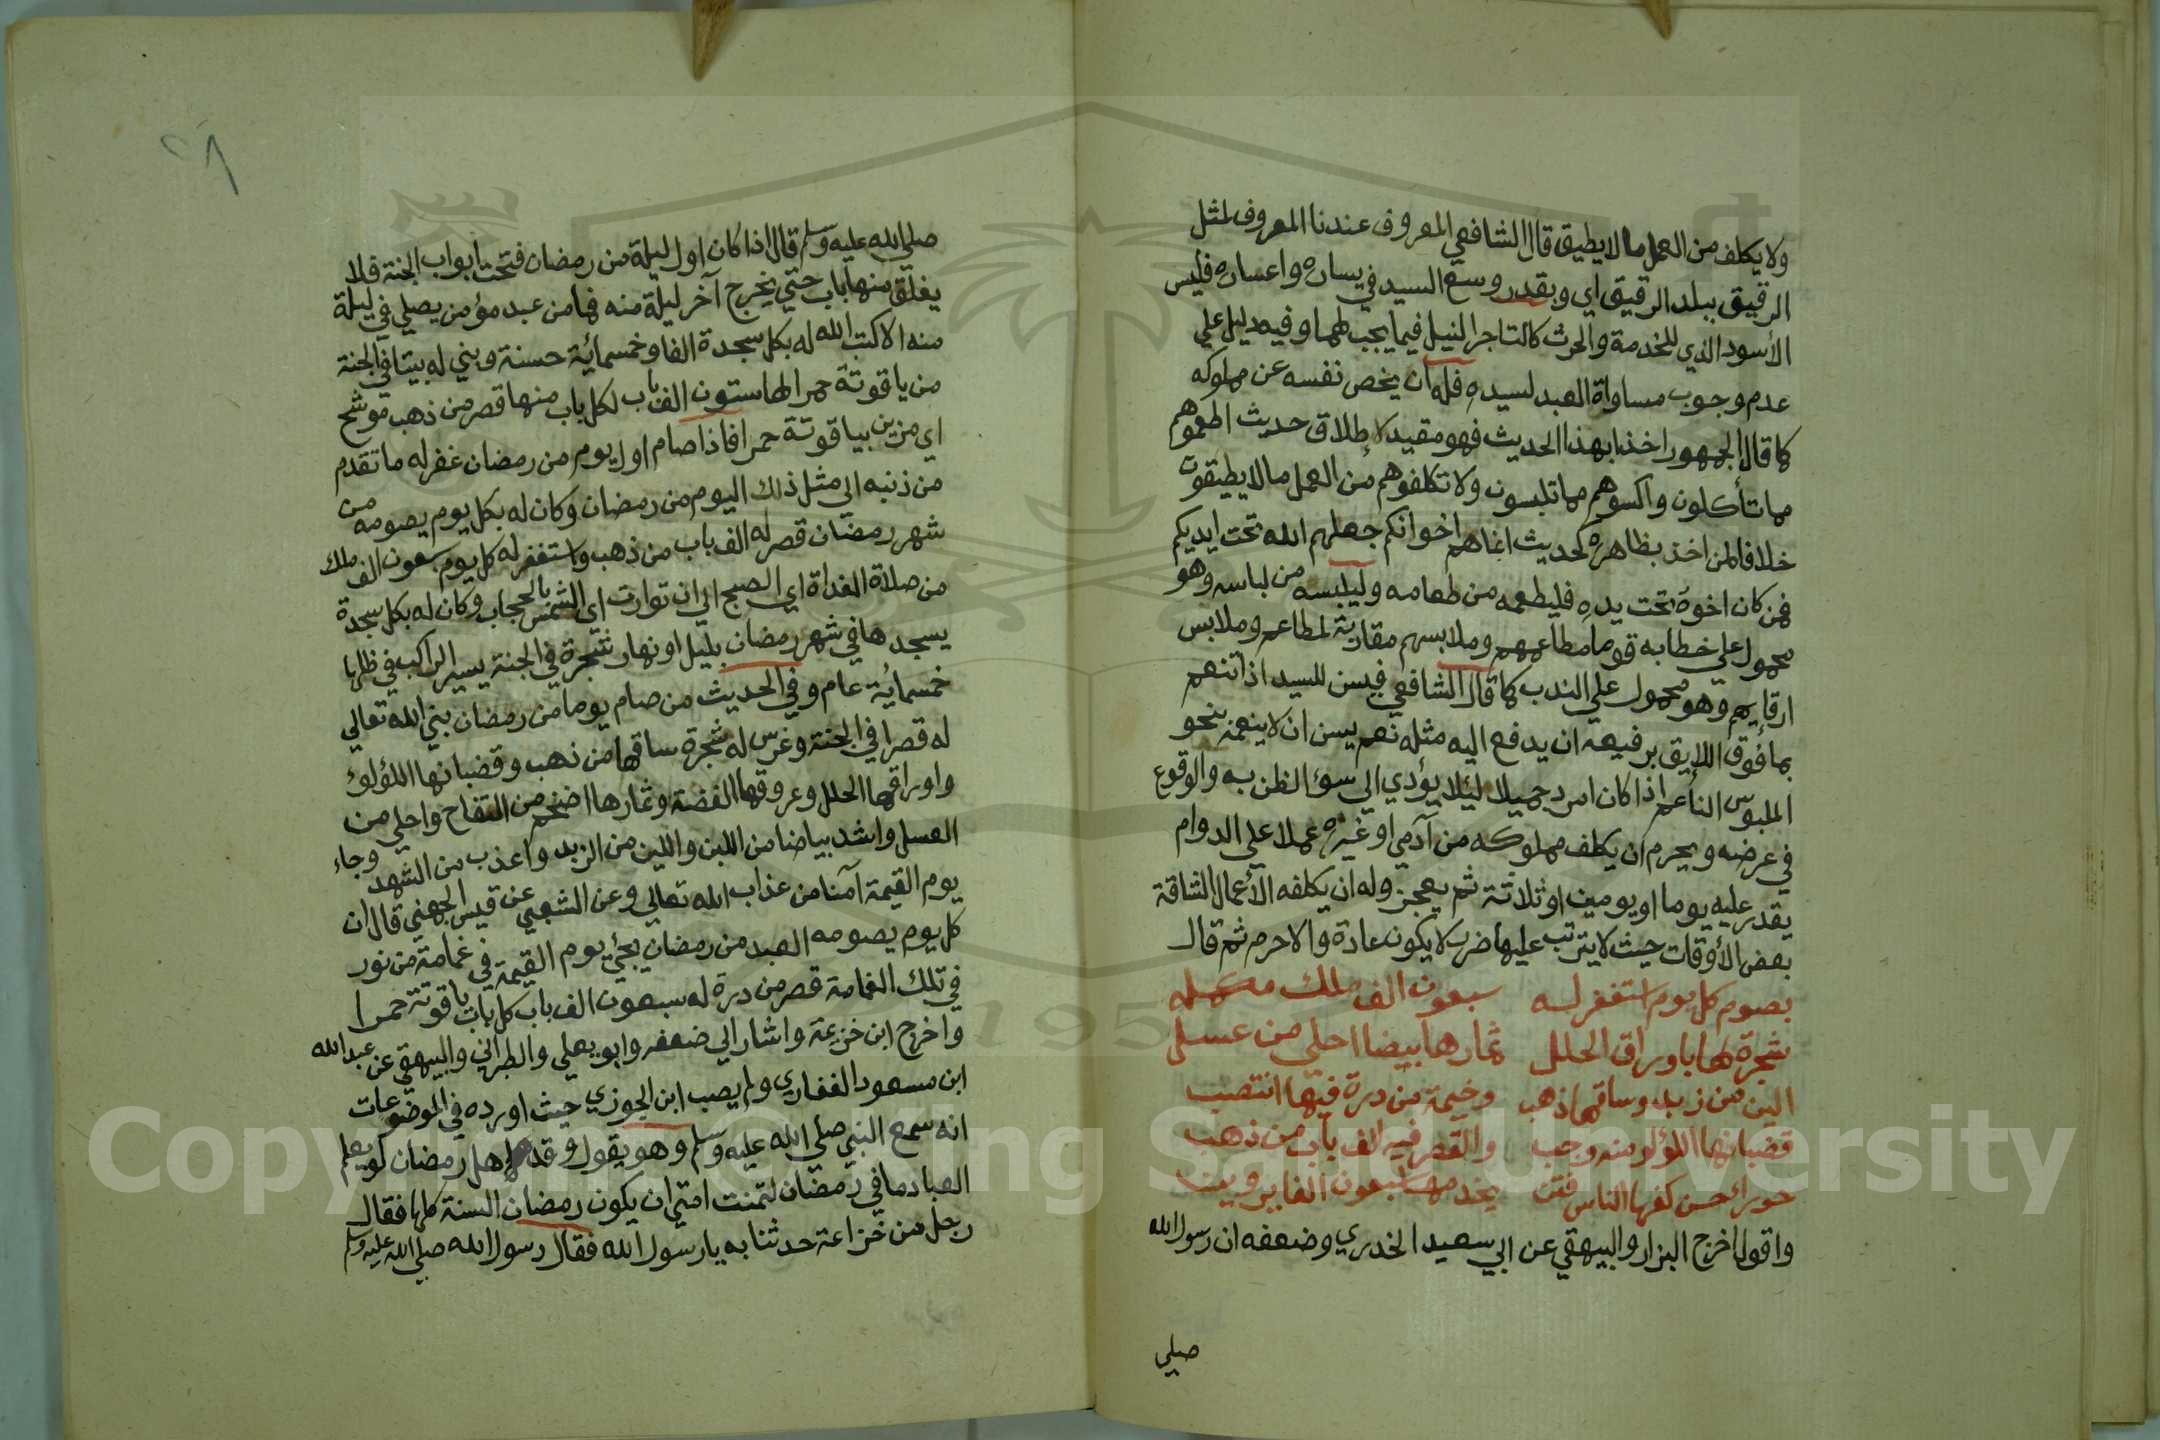 ولا يكلف من العمل ما لا يطيق قال الشافعي المعروف عندنا المعروف لمثل
الرقيق ببلد الرقيق اي وبقدر وسع السيد في يساره واعساره فليس
الأسود الذي للخدمة والحرث كالتاجر النبيل فيما يجب لهما وفيه دليل علي
عدم وجوب مساواة العبد لسيده فله ان يخص نفسه عن مملوكه
كما قال الجمهور اخذا بهذا الحديث فهو مقيد لاطلاق حديث اطعموهم
مما تأكلون واكسوهم مما تلبسون ولا تكلفوهم من العمل ما لا يطيقون
خلافا لمن اخذ بظاهره كحديث انما هم اخوانكم جعلهم الله تحت ايديكم
فمن كان اخوه تحت يده فليطعمه من طعامه وليلبسه من لباسه وهو
محمول علي خطابه قوما مطاعمهم وملابسهم مقاربة لمطاعم وملابس
ارقايهم وهو محمول علي الندب كما قال الشافعي فيسن للسيد اذا تنعم
بما فوق اللايق برفيعه ان يدفع اليه مثله نعم يسن ان لا ينعمه بنحو
الملبوس الناعم اذا كان امرد جميلا لئلا يؤدي الي سوء الظن به والوقوع
في عرضه ويحرم ان يكلف مملوكه من آدمي او غيره عملا علي الدوام
يقدر عليه يوما او يومين او ثلاثة ثم يعجز وله ان يكلفه الأعمال الشاقة
بعض الأوقات حيث لا يترتب عليها ضرر لا يكون عادة والا حرم ثم قال
بصوم كل يوم استغفر له سبعون الف ملك مكمله
شجرة لها باوراق الحلل ثمارها بيضا احلي من عسل
الين من زبد وساقها ذهب وخيمة من درة فيها انتصب
قضبانها اللؤلؤ منه وجب والقصر فيه الف باب من ذهب
حوراء حسن كفها الناس فتن يخدمها سبعون الفا
واقول اخرج البزار والبيهقي عن ابي سعيد الخدري وضعفه ان رسول الله
صلي
٢٨
صلي الله عليه وسلم قال اذا كان اول ليلة من رمضان فتحت ابواب الجنة فلا
يغلق منها باب حتي يخرج آخر ليلة منه فما من عبد مؤمن يصلي في ليلة
منه الا كتب الله له بكل سجدة الفا وخمسمائة حسنة وبني له بيتا في الجنة
من ياقوتة حمرا لها ستون الف باب لكل باب منها قصر من ذهب موشح
اي مزين بياقوتة حمرا فاذا صام اول يوم من رمضان غفر له ما تقدم
من ذنبه الي مثل ذلك اليوم من رمضان وكان له بكل يوم يصومه من
شهر رمضان قصر له الف باب من ذهب واستغفر له كل يوم سبعون الف ملك
من صلاة الغداة اي الصبح الي ان توارت اي الشمس بالحجاب وكان له بكل سجدة
يسجدها في شهر رمضان بليل او نهار شجرة في الجنة يسير الراكب في ظلها
خمسمائة عام وفي الحديث من صام يوما من رمضان بني الله تعالي
له قصرا في الجنة وغرس له شجرة ساقها من ذهب وقضبانها اللؤلؤ
واوراقها الحلل وعروقها الفضة وثمارها اضخم من التفاح واحلي من
العسل واشد بياضا من اللبن والين من الزبد واعذب من الشهد وجاء
يوم القيمة آمنا من عذاب الله تعالي وعن الشعبي عن قيس الجهني قال ان
كل يوم يصومه العبد من رمضان يجئ يوم القيمة في غمامة من نور
في تلك الغمامة قصر من درة له سبعون الف باب كل باب ياقوتة حمرا
واخرج ابن خزيمة واشار الي ضعفه وابو يعلي والطبراني والبيهقي عن عبد الله
ابن مسعود الغفاري ولم يصب ابن الجوزي حيث اورده في الموضوعات
انه سمع النبي صلي الله عليه وسلم وهو يقول وقد اهل رمضان لو يعلم
العباد ما في رمضان لتمنت امتي ان يكون رمضان السنة كلها فقال
رجل من خزاعة حدثنا به يا رسول الله فقال رسول الله صلي الله عليه وسلم
Copyright © King Saud University
1957